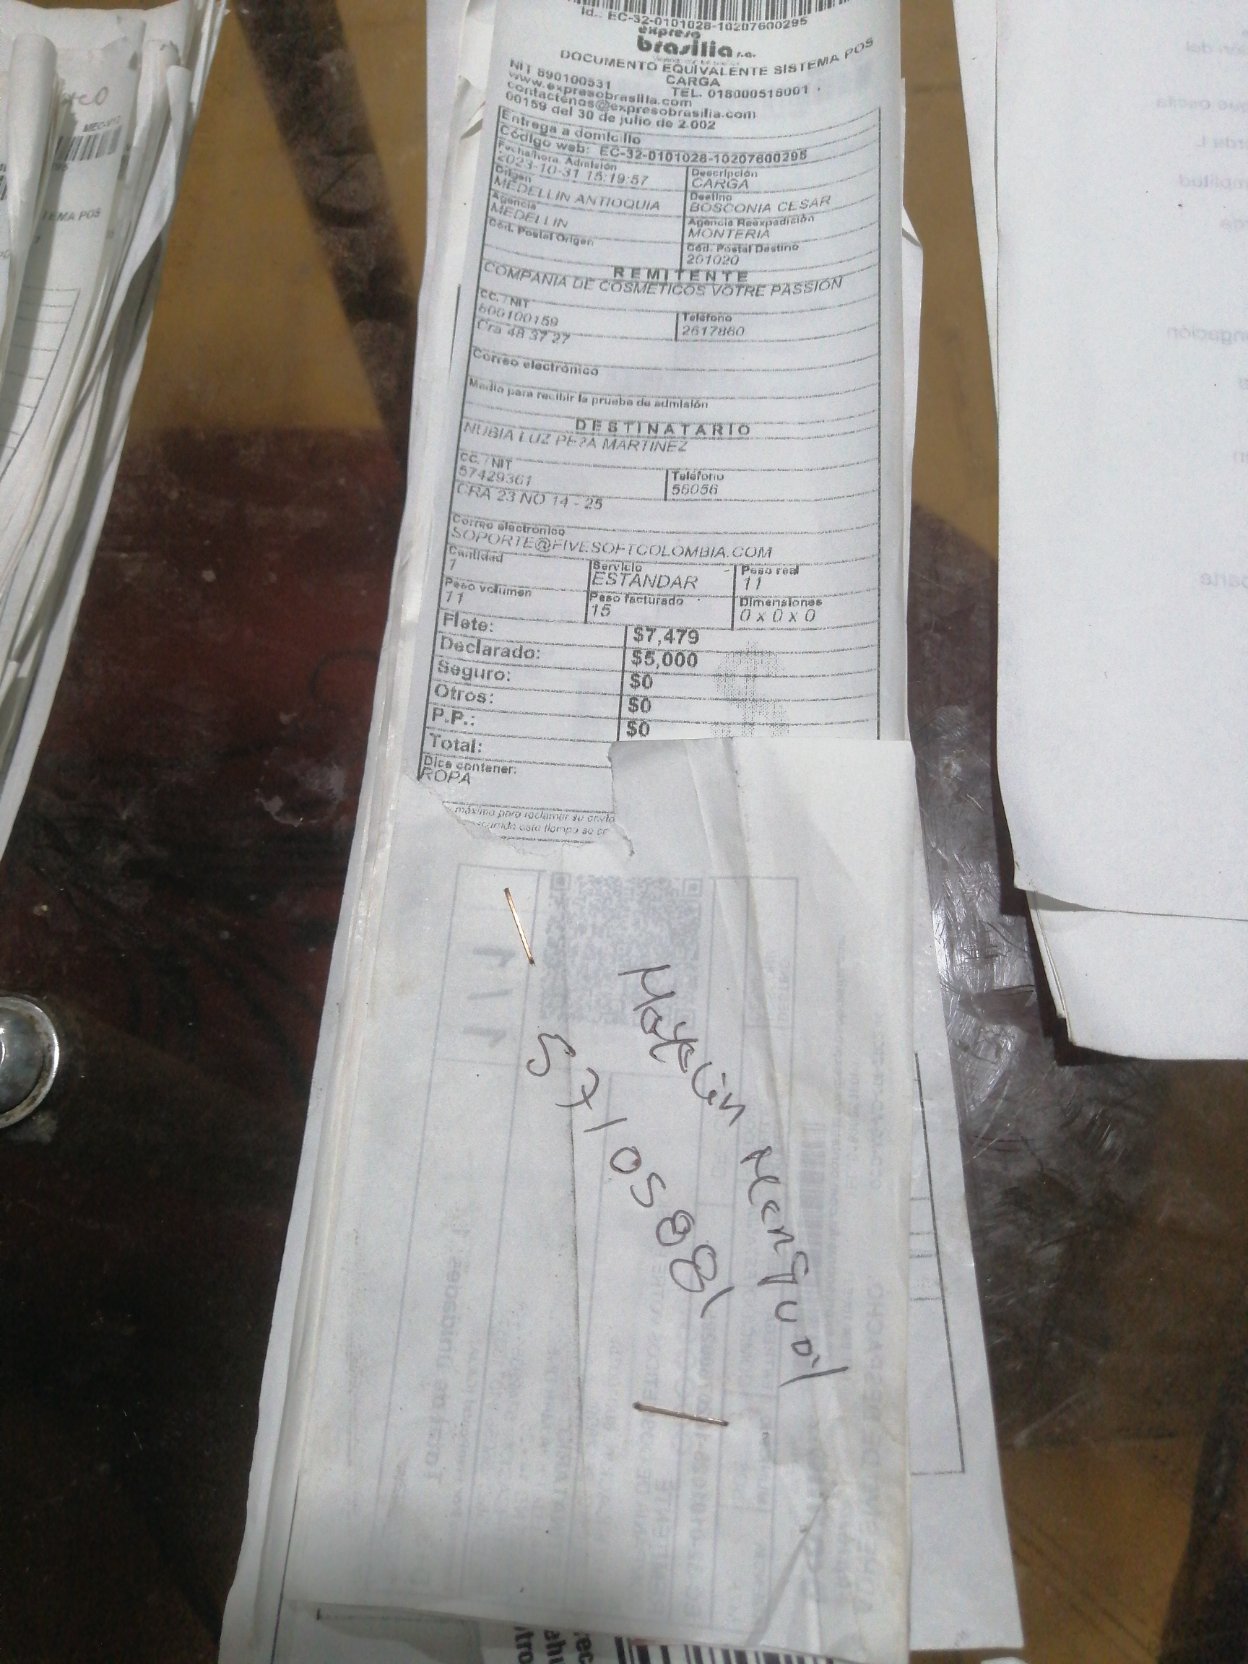 Id.. EC-32-0101028-10207600295
expreso
brasilia s.a.
DOCUMENTO EQUIVALENTE SISTEMA POS
CARGA
NIT 890100531
TEL. 018000518001
www.expresobrasilia.com
contactenos@expresobrasilia.com
00159 del 30 de julio de 2.002
Entrega a domicilio
Código web: EC-32-0101028-10207600295
Fecha/hora Admisión
2023-10-31 15:19:57
Descripción
CARGA
Origen
MEDELLIN ANTIOQUIA
Destino
BOSCONIA CESAR
Agencia
MEDELLIN
Agencia Reexpedición
MONTERIA
Cód. Postal Origen
Cód. Postal Destino
201020
REMITENTE
COMPANIA DE COSMETICOS VOTRE PASSION
CC. / NIT
800100159
Teléfono
2617860
Cra 48 37 27
Correo electrónico
Medio para recibir la prueba de admisión
DESTINATARIO
NUBIA LUZ MARTINEZ
CC. / NIT
57429361
Teléfono
56056
CRA 23 NO 14 - 25
Correo electrónico
SOPORTE@FIVESOFTCOLOMBIA.COM
Cantidad
1
Servicio
ESTANDAR
Peso real
11
Peso volumen
11
Peso facturado
15
Dimensiones
0 x 0 x 0
Flete: $7,479
Declarado: $5,000
Seguro: $0
Otros: $0
P.P.: $0
Total:
Dice contener:
ROPA
máximo para reclamar su envío
este tiempo se
57105881
TEMA POS